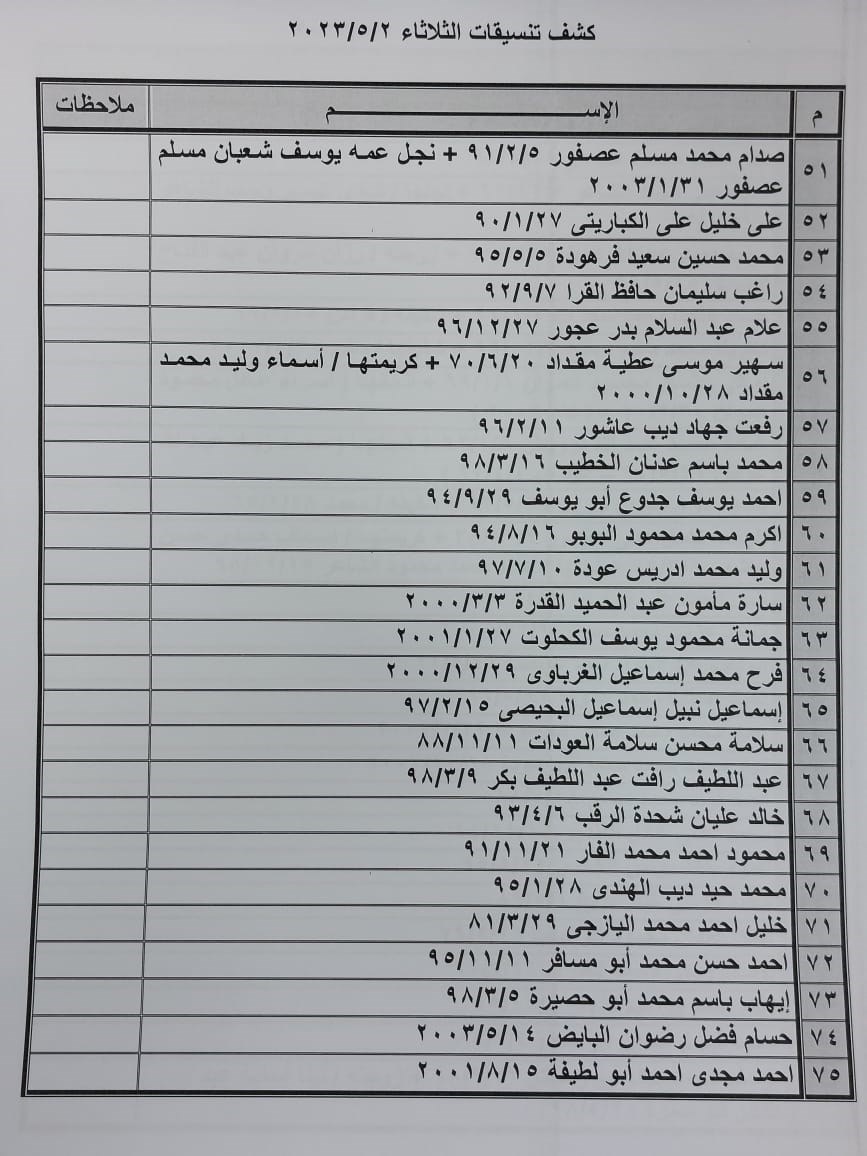 كشف تنسيقات الثلاثاء ٢٠٢٣/٥/٢
م الإســـــــــــــم ملاحظات
٥١ صدام محمد مسلم عصفور ٩١/٢/٥ + نجل عمه يوسف شعبان مسلم
عصفور ٢٠٠٣/١/٣١
٥٢ على خليل على الكباريتى ٩٠/١/٢٧
٥٣ محمد حسين سعيد فرهودة ٩٥/٥/٥
٥٤ راغب سليمان حافظ القرا ٩٢/٩/٧
٥٥ علام عبد السلام بدر عجور ٩٦/١٢/٢٧
٥٦ سهير موسى عطية مقداد ٧٠/٦/٢٠ + كريمتها / أسماء وليد محمد
مقداد ٢٠٠٠/١٠/٢٨
٥٧ رفعت جهاد ديب عاشور ٩٦/٢/١١
٥٨ محمد باسم عدنان الخطيب ٩٨/٣/١٦
٥٩ احمد يوسف جدوع أبو يوسف ٩٤/٩/٢٩
٦٠ اكرم محمد محمود البوبو ٩٤/٨/١٦
٦١ وليد محمد ادريس عودة ٩٧/٧/١٠
٦٢ سارة مأمون عبد الحميد القدرة ٢٠٠٠/٣/٣
٦٣ جمانة محمود يوسف الكحلوت ٢٠٠١/١/٢٧
٦٤ فرح محمد إسماعيل الغرباوى ٢٠٠٠/١٢/٢٩
٦٥ إسماعيل نبيل إسماعيل البحيصى ٩٧/٢/١٥
٦٦ سلامة محسن سلامة العودات ٨٨/١١/١١
٦٧ عبد اللطيف رافت عبد اللطيف بكر ٩٨/٣/٩
٦٨ خالد عليان شحدة الرقب ٩٣/٤/٦
٦٩ محمود احمد محمد الفار ٩١/١١/٢١
٧٠ محمد حيد ديب الهندى ٩٥/١/٢٨
٧١ خليل احمد محمد اليازجى ٨١/٣/٢٩
٧٢ احمد حسن محمد أبو مسافر ٩٥/١١/١١
٧٣ إيهاب باسم محمد أبو حصيرة ٩٨/٣/٥
٧٤ حسام فضل رضوان البايض ٢٠٠٣/٥/١٤
٧٥ احمد مجدى احمد أبو لطيفة ٢٠٠١/٨/١٥